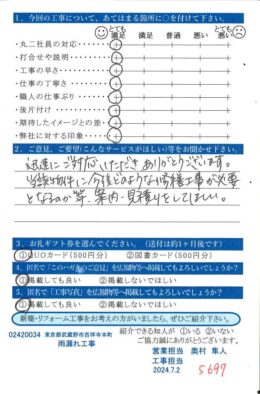 1．今回の工事について、あてはまる箇所に○を付けて下さい。
とても満足 満足 普通 悪い とても悪い
・丸二社員の対応・・・
・打合せや説明・・・
・工事の早さ・・・
・仕事の丁寧さ・・・
・職人の仕事ぶり・・・
・後片付け・・・
・期待したイメージとの差・・・
・弊社に対する印象・・・
2．ご意見、ご要望(こんなサービスがほしい)等をお聞かせ下さい。
迅速にご対応いただきありがとうございます。
当該物件に今後どのような営繕工事が必要
となるのか等、案内・見積りをしてほしい。
3．お礼ギフト券を選んでください。(送付は約1ヶ月後です)
①QUOカード(500円分) ②図書カード(500円分)
4．匿名で「このハガキのご意見」を広報物等へ掲載してもよろしいでしょうか?
①掲載しても良い ②掲載しないでほしい
5．匿名で「工事写真」を広報物等へ掲載してもよろしいでしょうか?
①掲載しても良い ②掲載しないでほしい
新築・リフォーム工事をお考えの方がいましたら、ぜひご紹介下さい。
紹介できる知人が ①いる ②いない
ご協力誠にありがとうございます。
02420034 東京都武蔵野市吉祥寺本町
雨漏れ工事
営業担当 奥村 隼人
工事担当
2024.7.2
5697